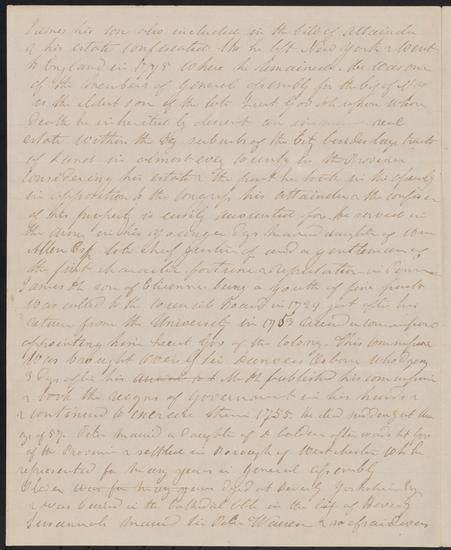 James his son also included in the bill of attainder
& his estate confiscated tho he left New York & went
to England in 1775 where he remained. He was one
of the members of General Assembly for the City of N Y &
as the eldest son of the late Lieut Gov & upon whose
death he inherited by descent an immense real
estate within the & suburbs of the City besides large tracts
of Lands in almost every County in the Province
Considering his estate & the part he took in the
in opposition to the Congress his attainder & the confiscn
of his property is easily accounted for. He served in
the army in his younger dys married daughter of Wm
Allen Esq late chief justice of and a gentleman of
the first character fortune & reputation in Penn
James 2d son of Etienne being a youth of fine parts
was called to the Council Board in 1729 just after his
return from the University in 1753 recvd a commission
appointing him Lieut Gov of the Colony. This commission
was brought over by Sir Danvers Osborn who
3 dys after his published his commission
& took the reigns of government in his hands
& continued to exercise them 1755 He died suddenly at the
age of 57. Peter married a Daughter of Colden afterwards Lt Gov
of the Province & settled in Borough of Westchester which he
represented for many years in General Assembly
Oliver was for many years died at Beverly Yorkshire
& was buried in the Cathedral Chh in the City of Beverly
Susannah married Sir Peter Warren &